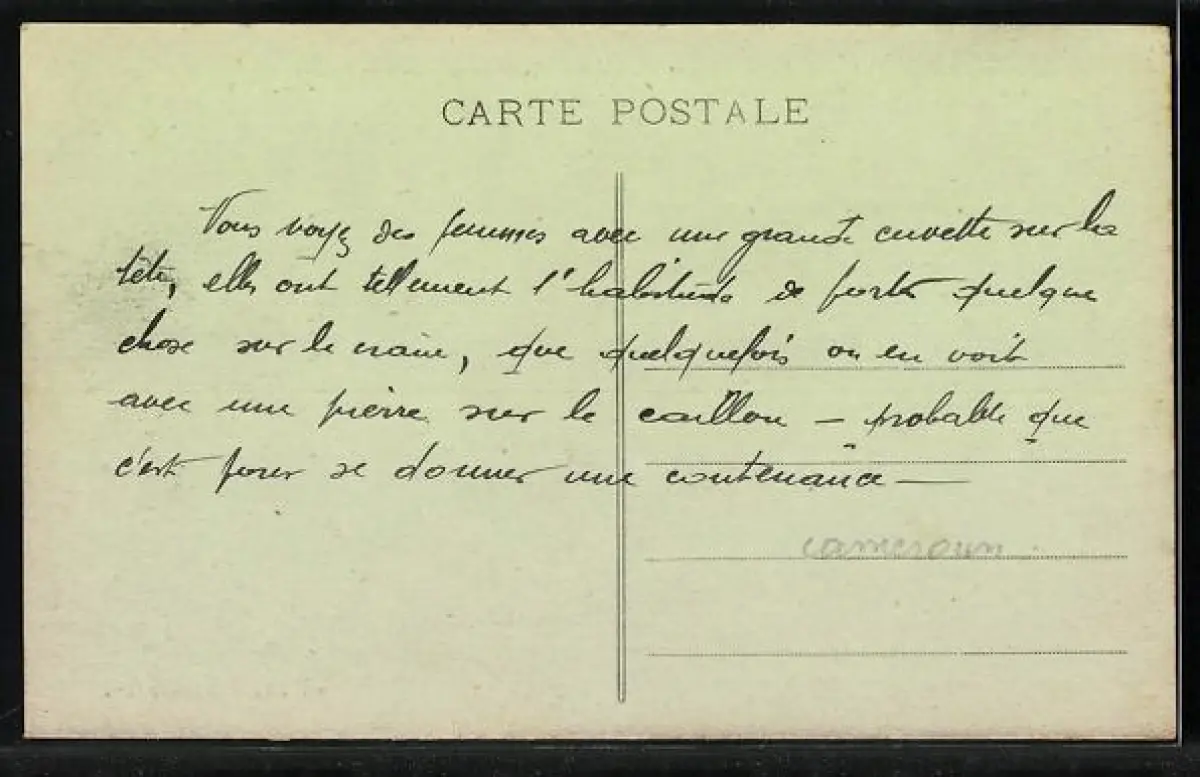 CARTE POSTALE
Vous voyez des femmes avec une grande cuvette sur la
tête, elles ont tellement l'habitude de porter quelque
chose sur le crâne, que quelquefois on en voit
avec une pierre sur le caillou – probable que
c'est pour se donner une contenance —
cameroun